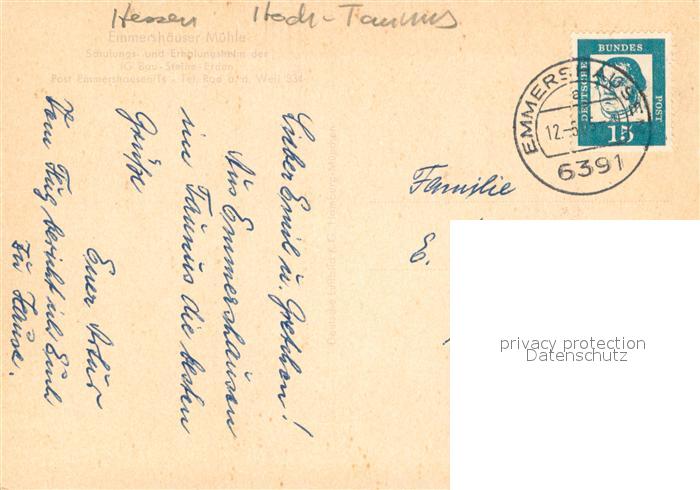 Hessen Hoch-Taunus
Emmershäuser Mühle
Schulungs- und Erholungsheim der
IG Bau-Steine-Erden
Post Emmershausen/Ts - Tel. Rod a. d. Weil 334
Lieber Emil u. Gretchen!
Aus Emmershausen
im Taunus die besten
Grüße
Euer Artur
Vom Flug bericht ich Euch
zu Hause.
DEUTSCHE
BUNDES
POST
15
EMMERSHAUSEN
12.-5.
6391
Familie
E.
privacy protection
Datenschutz